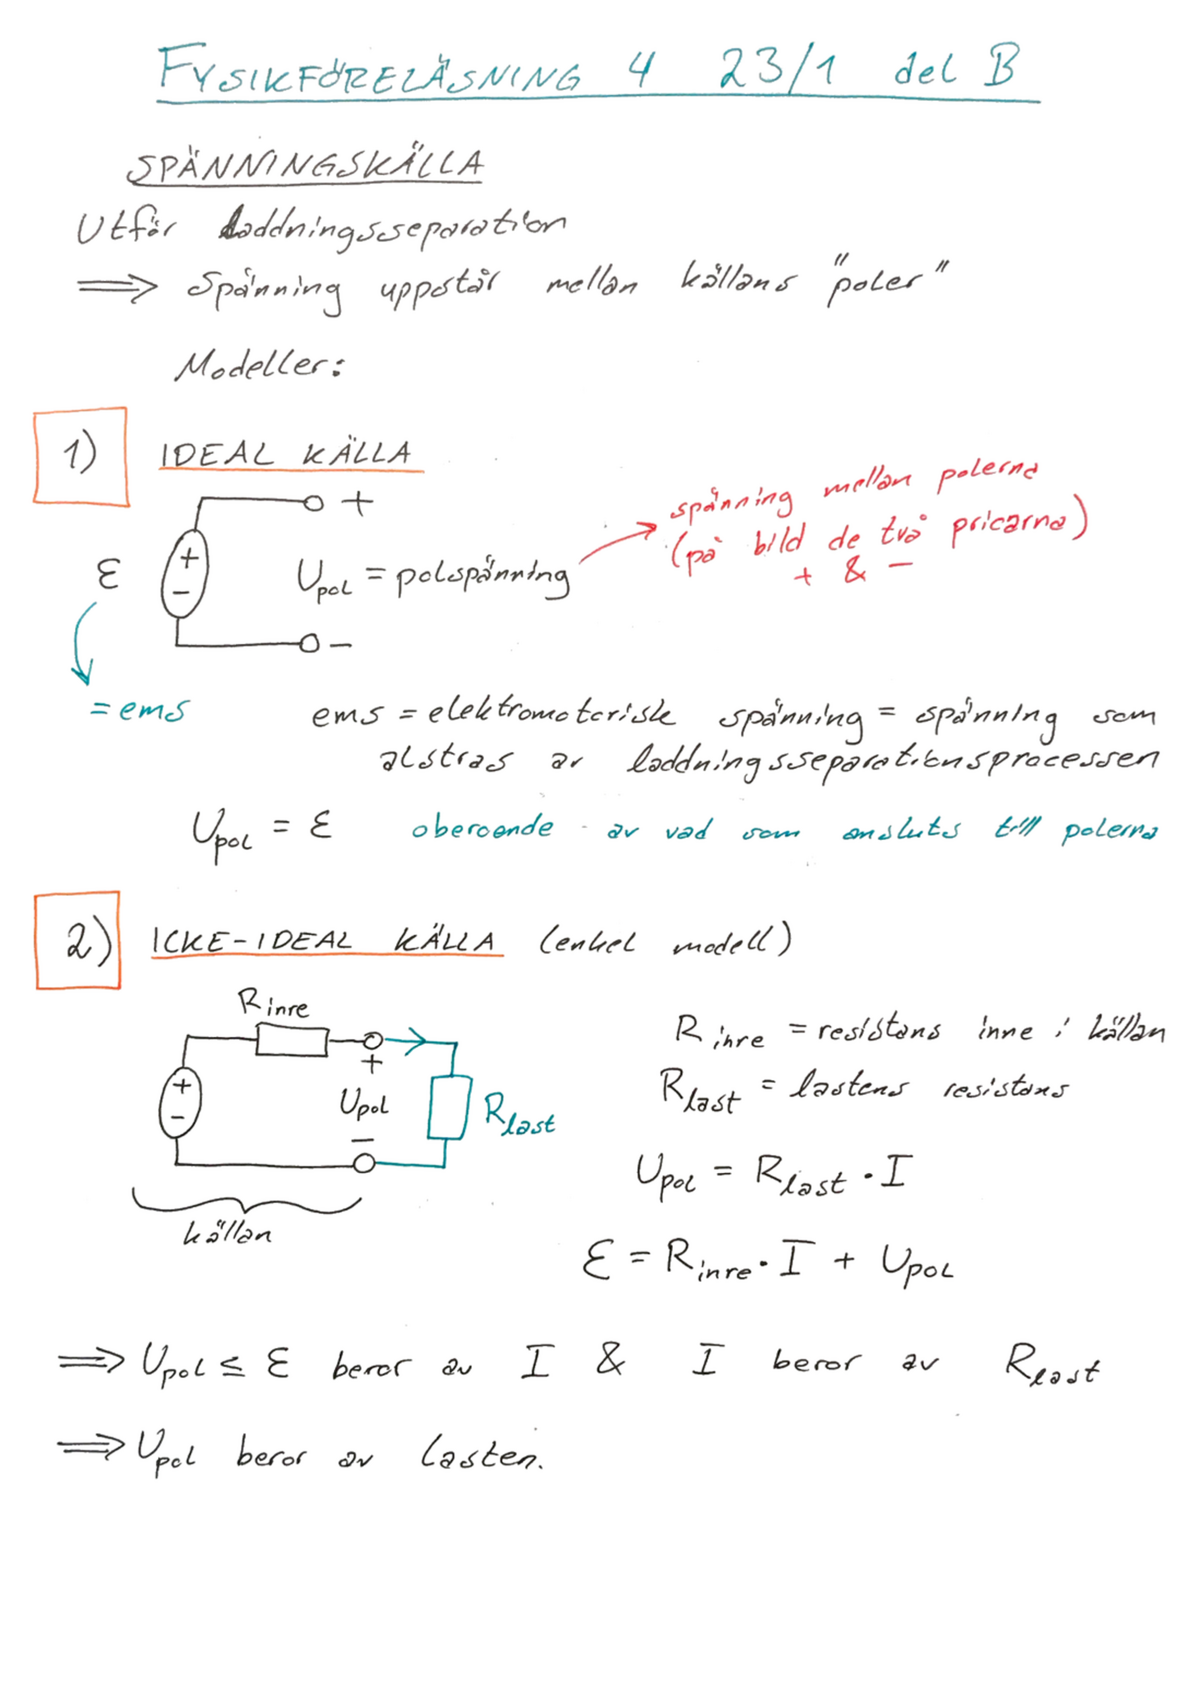 FYSIKFÖRELÄSNING 4 23/1 del B
SPÄNNINGSKÄLLA
Utför laddningsseparation
⟹ Spänning uppstår mellan källans "poler"
Modeller:
1) IDEAL KÄLLA
+
spänning mellan polerna
(på bild de två prickarna)
+ & -
ε
+
-
Upol = polspänning
-
= ems
ems = elektromotorisk spänning = spänning som
alstras av laddningsseparationsprocessen
Upol = ε oberoende av vad som ansluts till polerna
2) ICKE-IDEAL KÄLLA (enkel modell)
Rinre
+
-
+
Upol
-
Rlast
källan
Rinre = resistans inne i källan
Rlast = lastens resistans
Upol = Rlast · I
ε = Rinre · I + Upol
⟹ Upol ≤ ε beror av I & I beror av Rlast
⟹ Upol beror av lasten.